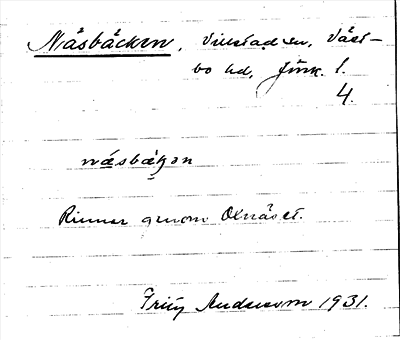 Näsbäcken, Villstad sn, Väst-
bo hd, Jönk. l.
4.
næsbækən
Rinner genom Olnäset.
Fritz Andersson 1931.